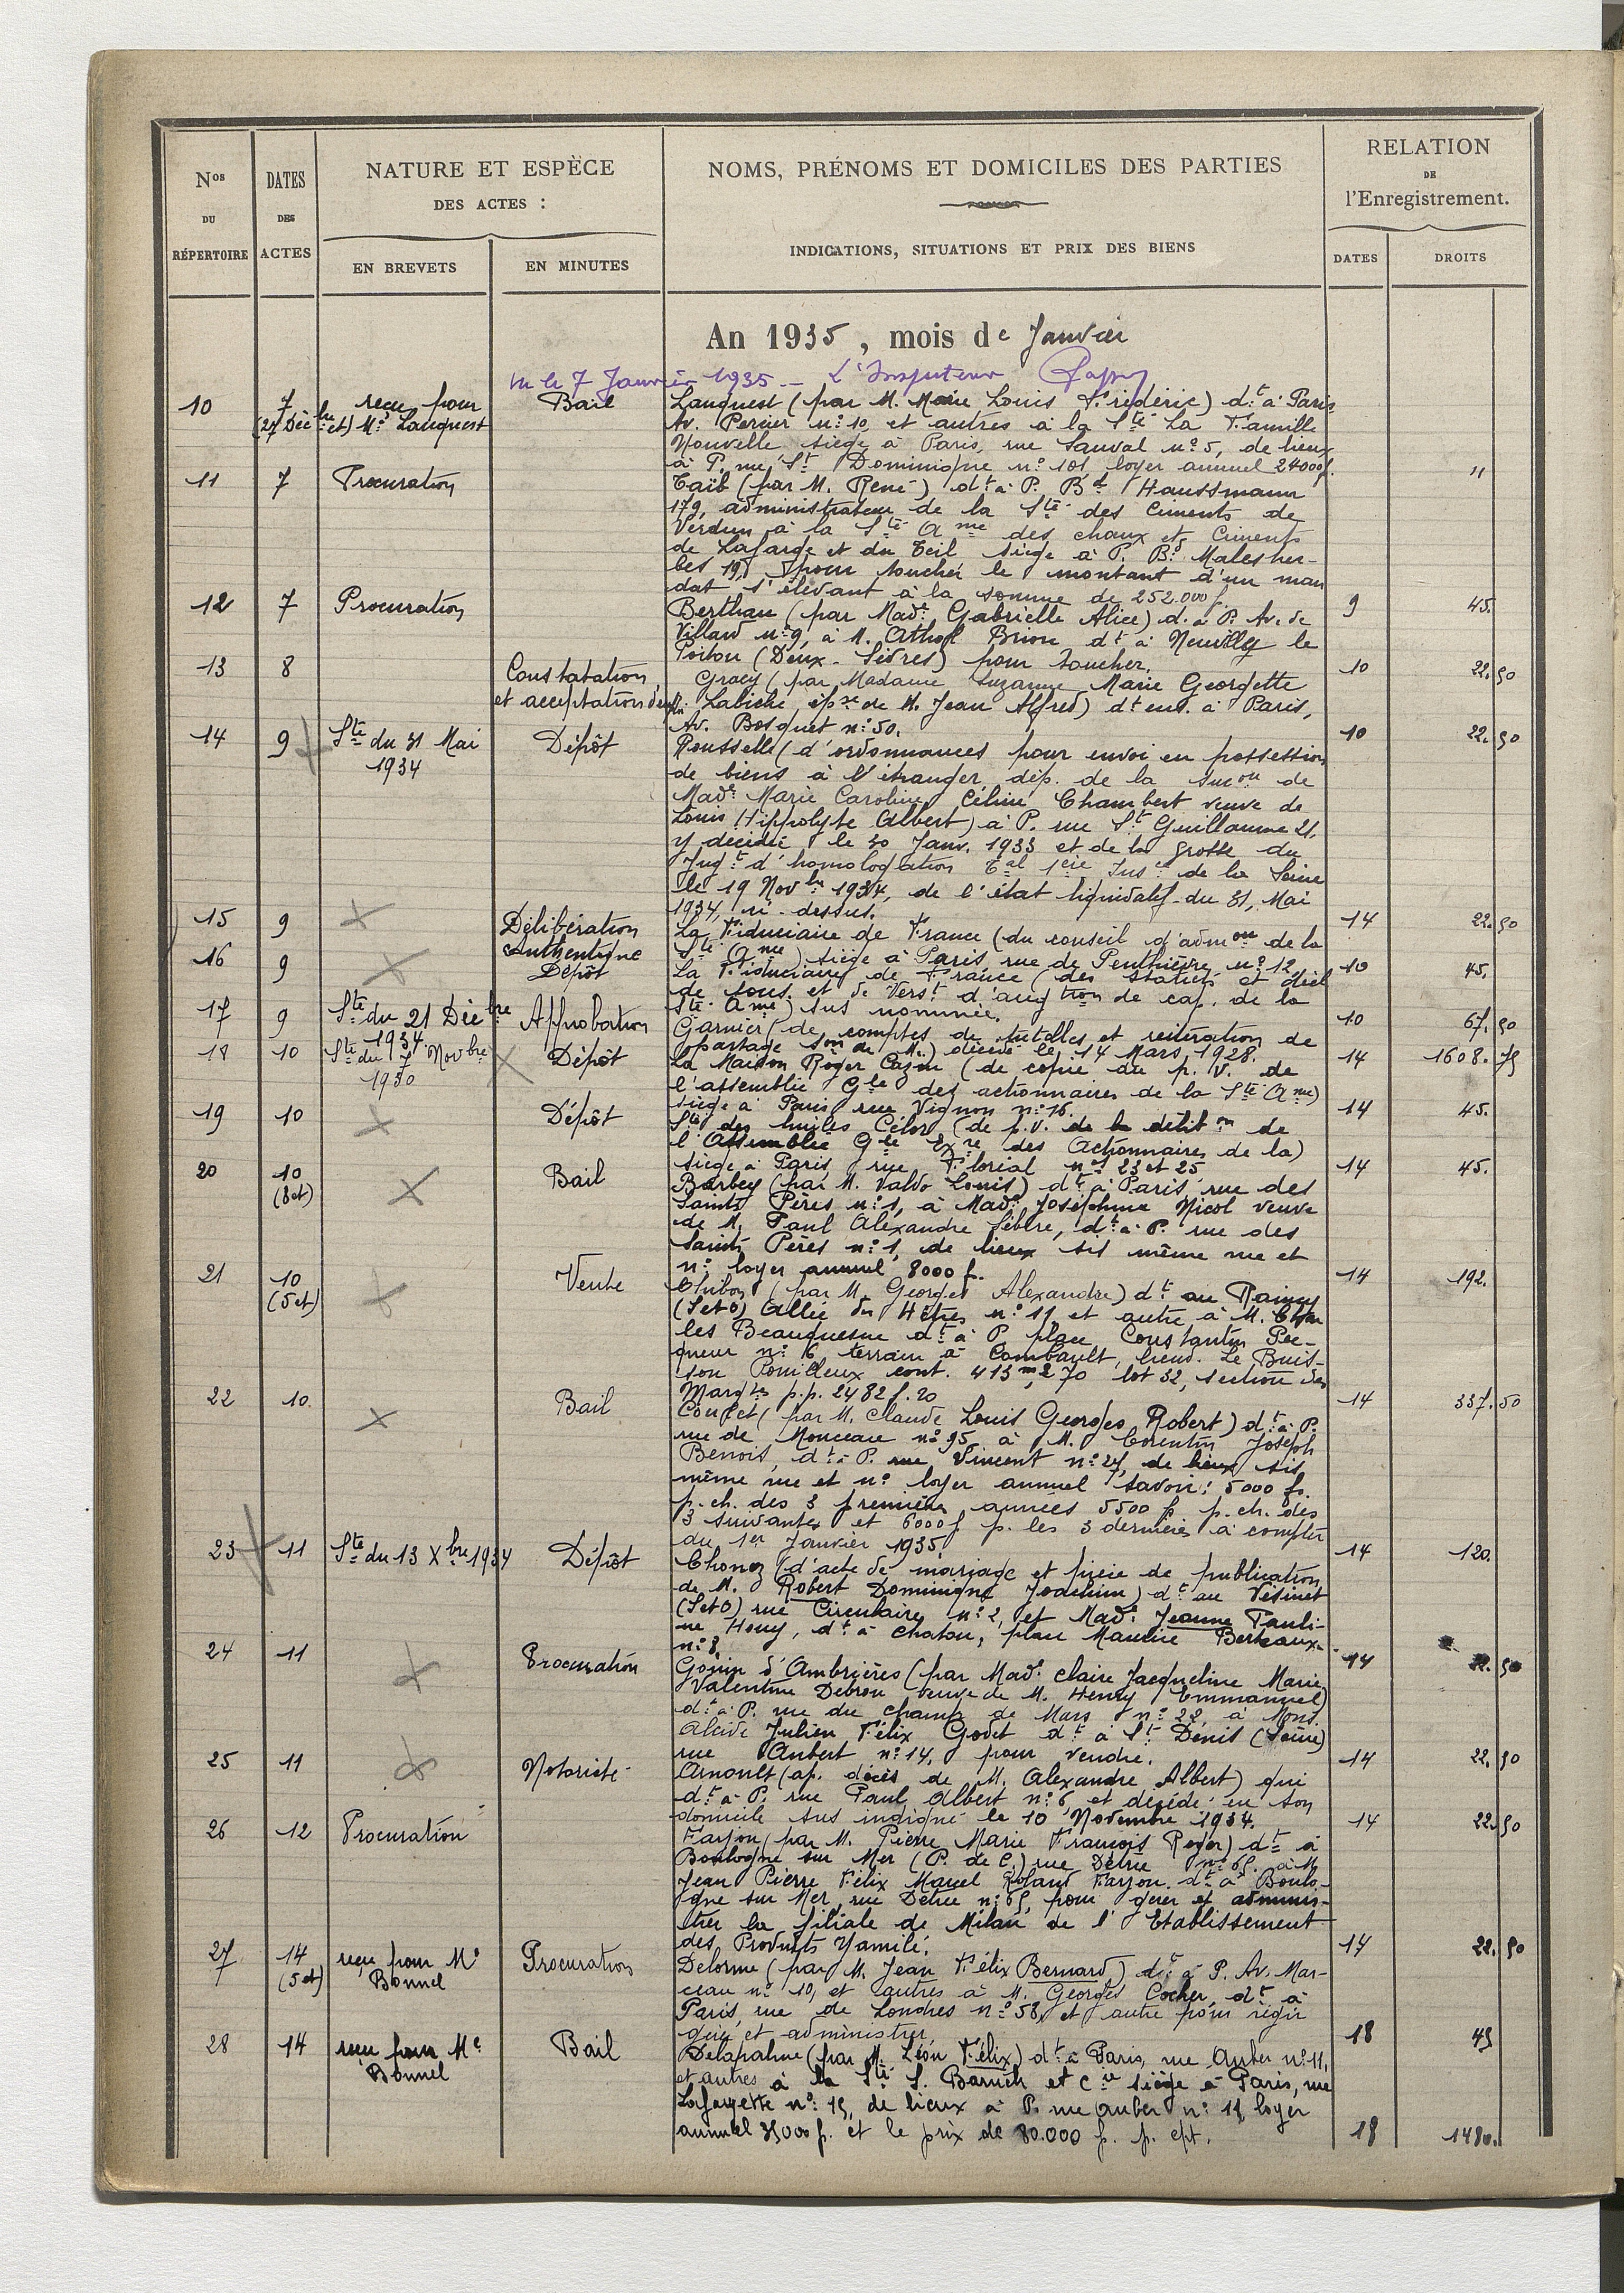 Nos DU RÉPERTOIRE
DATES DES ACTES
NATURE ET ESPÈCE DES ACTES :
EN BREVETS
EN MINUTES
NOMS, PRÉNOMS ET DOMICILES DES PARTIES
INDICATIONS, SITUATIONS ET PRIX DES BIENS
RELATION DE l'Enregistrement.
DATES
DROITS
An 1935, mois de Janvier
Vu le 7 Janvier 1935 _ L'Inspecteur
10 7 reçu pour Bail Lanquest (par M. Marie Louis Frédéric) dt à Paris
(27 Décbre et) Me Lanquest Av. Percier n° 10, et autres à la Sté La Famille
Nouvelle siège à Paris, rue Sauval n° 5, de lieux
à P. rue St Dominique n° 101 loyer annuel 24000 f. "
11 7 Procuration Taïb (par M. René) dt à P. Bd Haussmann
179, administrateur de la Sté des Ciments de
Verdun à la Sté Ame des chaux et Ciments
de Lafarge et du Teil siège à P. Bd Malesher-
bes 19, pour toucher le montant d'un man
dat s'élevant à la somme de 252.000 f. 9 45.
12 7 Procuration Berthau (par Made Gabrielle Alice) d. à P. Av. de
Villars n° 9, à M. Athol Brion dt à Neuville le
Poitou (Deux-Sèvres) pour toucher. 10 22.50
13 8 Constatation Gracy (par Madame Suzanne Marie Georgette
et acceptation d'empl. Labiche épse de M. Jean Alfred) dt ens. à Paris,
Av. Bosquet n° 50. 10 22.50
14 9 Sté du 31 Mai 1934 Dépôt Rousselle (d'ordonnances pour envoi en possession
de biens à l'étranger, dép. de la sucon de
Made Marie Caroline Céline Chambert veuve de
Louis Hippolyte Albert) à P. rue St Guillaume 21,
y décédée le 30 Janv. 1933 et de la grosse du
Jugt d'homologation Tal 1ère Insce de la Seine
le 19 Novbre 1934, de l'état liquidatif du 31 Mai
1934, ci-dessus. 14 22.50
15 9 Délibération La Fiduciaire de France (du conseil d'admon de la
Authentique Sté Ame) siège à Paris rue de Penthièvre n° 12 10 45.
16 9 Dépôt La Fiduciaire de France (des statuts et décl
de sous. et de Verst d'augtion de cap. de la
Sté Ame) sus nommée. 10 67.50
17 9 Sté du 21 Décbre 1934 Approbation Garnier (de comptes de tutelles et réitération de
partage son de M.) décédé le 14 Mars 1928. 14 1608.75
18 10 Sté du 7 Novbre 1930 Dépôt La Maison Roger Cazin (de copie du p. v. de
l'assemblée Gle des actionnaires de la Sté Ame)
siège à Paris rue Vignon n° 16. 14 45.
19 10 Dépôt Sté des huiles Célor (de p.v. de la délibon de
l'Assemblée Gle Exre des Actionnaires de la)
siège à Paris rue Floréal nos 23 et 25 14 45.
20 10 (8 et) Bail Barbey (par M. Valdo Louis) dt à Paris rue des
Saints Pères n° 1, à Made Joséphine Nicol veuve
de M. Paul Alexandre Lèbre, dt à P. rue des
Saints Pères n° 1, de lieux sis même rue et
n° loyer annuel 8000 f. 14 192.
21 10 (5 et) Vente Chibon (par M. Georges Alexandre) dt au Raincy
(S et O) Allée des Hêtres n° 11, et autre à M. Char
les Beauquesne dt à P. place Constantin Pec-
queur n° 6 terrain à Combault, lieud. Le Buis-
son Pouilleux cont. 413 m2 70 lot 32, section des
Margtes p.p. 2482 f. 20 14 337.50
22 10 Bail Coupet (par M. Claude Louis Georges Robert) dt à P.
rue de Monceau n° 95 à M. Corentin Joseph
Benoit, dt à P. rue Vincent n° 27, de lieux sis
même rue et n° loyer annuel savoir : 5000 fs.
p. ch. des 3 premières années 5500 f p. ch. des
3 suivantes et 6000 f p. les 3 dernières à compter
du 1er Janvier 1935 14 120.
23 11 Sté du 13 Xbre 1934 Dépôt Chonez (d'acte de mariage et pièce de publication
de M. Robert Dominique Joachim) dt au Vésinet
(S et O) rue Circulaire n° 2, et Made Jeanne Pauli-
ne Houy, dt à Chatou, place Maurice Berteaux
n° 8. 14 22.50
24 11 Procuration Gouin d'Ambrières (par Made Claire Jacqueline Marie
Valentine Debrou veuve de M. Henry Emmanuel)
dt à P. rue du Champ de Mars n° 22, à Mons.
Alcide Julien Félix Godet dt à St Denis (Seine)
rue Aubert n° 14, pour vendre. 14 22.50
25 11 Notoriété Arnoult (ap. décès de M. Alexandre Albert) qui
dt à P. rue Paul Albert n° 6 et décédé en son
domicile sus indiqué le 10 Novembre 1934. 14 22.50
26 12 Procuration Farjon (par M. Pierre Marie François Roger) dt à
Boulogne sur Mer (P. de C.) rue Détrie n° 65. à M.
Jean Pierre Félix Marcel Roland Farjon dt à Boulo-
gne sur Mer, rue Détrie n° 65, pour gérer et adminis-
trer la filiale de Milan de l'Etablissement
des Produits Yamilé. 14 22.50
27 14 (5 et) reçu pour Me Bonnel Procuration Delorme (par M. Jean Félix Bernard) dt à P. Av. Mar-
ceau n° 10, et autres à M. Georges Cocher, dt à
Paris, rue de Londres n° 58, et autre pour régir
gérer et administrer. 18 45
28 14 reçu pour Me Bonnel Bail Delapalme (par M. Léon Félix) dt à Paris, rue Auber n° 11,
et autres à la Sté S. Baruch et Cie siège à Paris, rue
Lafayette n° 15, de lieux à P. rue Auber n° 11, loyer
annuel 35,000 f. et le prix de 80.000 f. p. ept. 18 1480.